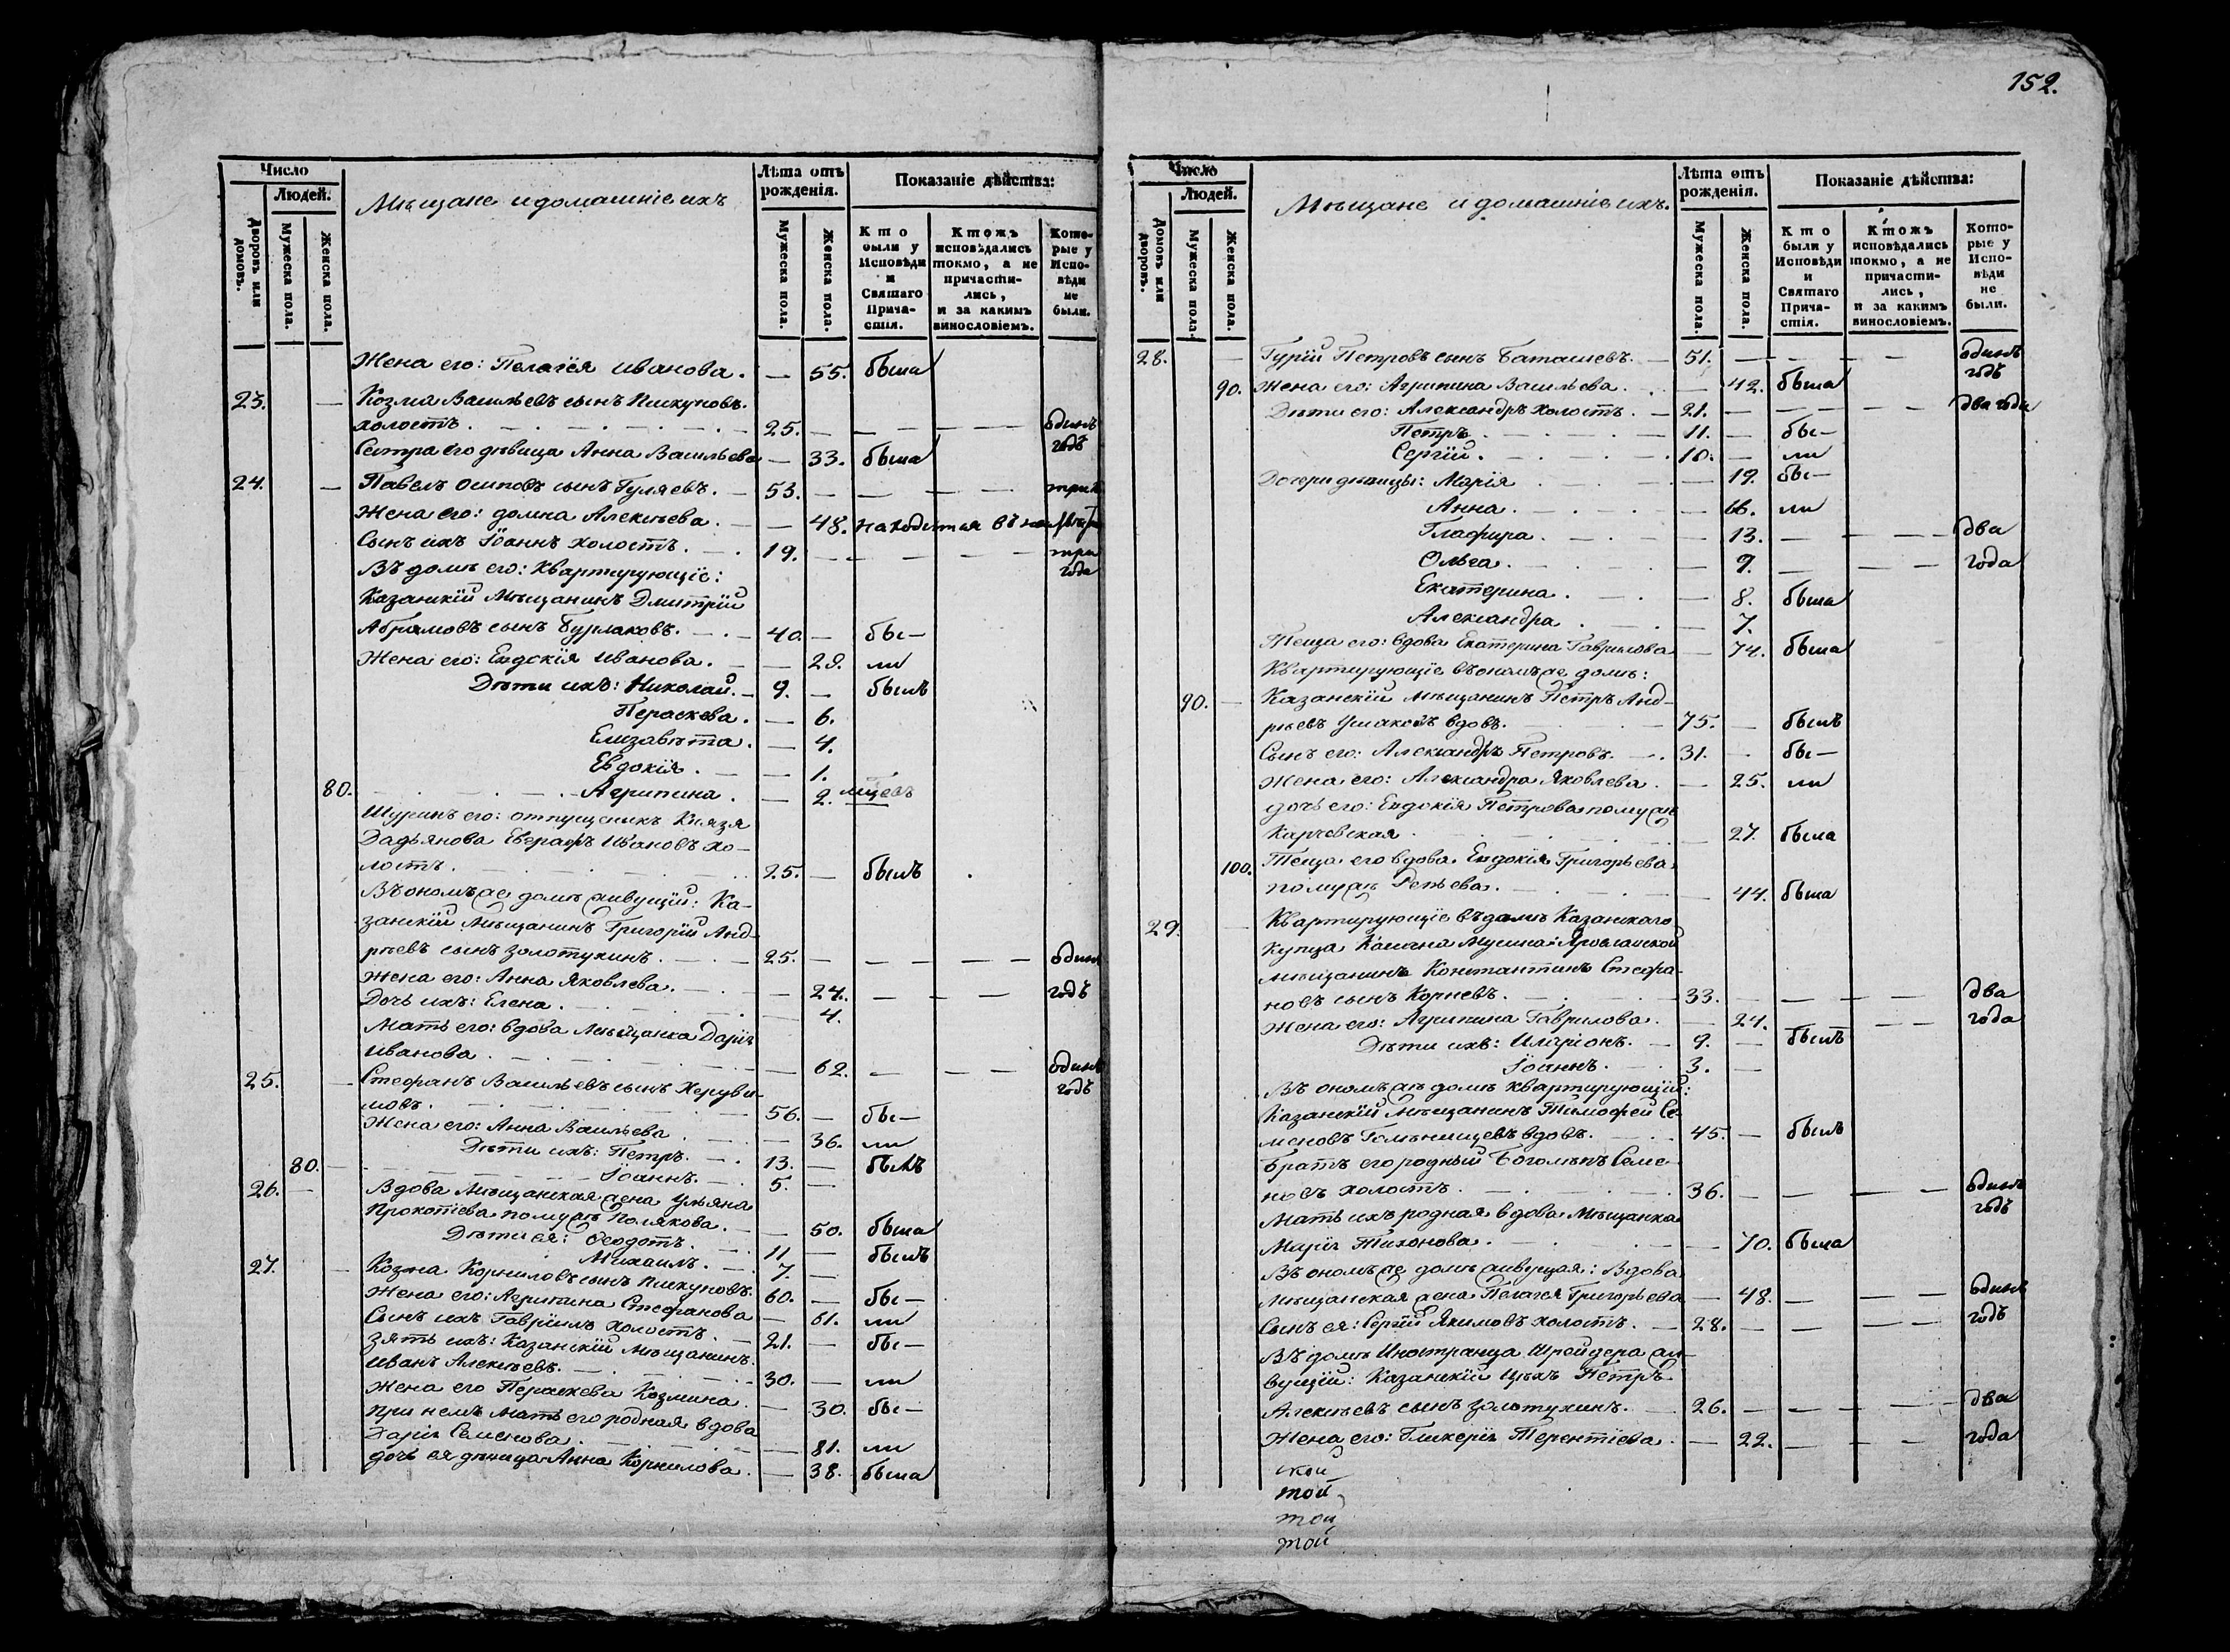 152.
Число
Людей.
Дворовъ или домовъ.
Мужеска пола.
Женска пола.
Мѣщане и домашніе ихъ
Лѣта отъ рожденія.
Мужеска пола.
Женска пола.
Показаніе дѣйства:
Кто были у Исповѣди и Святаго Прича-стія.
Ктожъ исповѣдались токмо, а не причасти-лись, и за какимъ винословіемъ.
Кото-рые у Испо-вѣди не были.
Жена его: Пелагія Иванова. — 55. была
23. — Козма Васильевъ сынъ Пискуновъ.
холостъ. 25. — — — одинъ
Сестра его дѣвица Анна Васильева — 33. была годъ
24. — Павелъ Осиповъ сынъ Гуляевъ. — 53. — — — три
Жена его: домна Алексѣева. — 48. находится въ
Сынъ ихъ Іоаннъ холостъ. 19. — — — три
Въ домѣ его: Квартирующіе: года
Казанскій Мѣщанинъ Дмитрій
Абрамовъ сынъ Бурлаковъ. — 40. — бы—
Жена его: Евдокія Иванова. — 28. ли
Дѣти ихъ: Николай. — 9. — былъ
Пераскева. — 6.
Елизавѣта. — 4.
Евдокія. — 1.
80. Агрипина. — 2.
Шуринъ его: отпущеникъ Князя
Дадьянова Евграфъ Ивановъ хо-
лостъ. 25. — былъ
Въ ономъ же домѣ живущій: Ка-
занскій Мѣщанинъ Григорій Анд-
рѣевъ сынъ Золотухинъ. — 25. — — — одинъ
Жена его: Анна Яковлева. — 24. — — годъ
Дочь ихъ: Елена. 4.
Мать его: вдова Мѣщанка Дарія
Иванова. — 62. — — одинъ
25. — Стефанъ Васильевъ сынъ Херуви- годъ
мовъ. 56. — бы—
Жена его: Анна Васильева — 36. ли
Дѣти ихъ: Петръ. 13. — былъ
80. — Іоаннъ. 5. —
26. — Вдова Мѣщанская жена Ульяна
Прокопіева по мужѣ Полякова. — 50. была
Дѣти ея: Ѳеодотъ. 11 — былъ
Михаилъ. 7. —
27. — Козма Корниловъ сынъ Пискуновъ. 60. — бы—
Жена его: Агрипина Стефанова — 61. ли
Сынъ ихъ Гавріилъ холостъ. — 21. — бы—
Зять ихъ: Казанскій Мѣщанинъ.
Иванъ Алексѣевъ. 30. — ли
Жена его Пераскева Козмина. — 30. бы—
При немъ мать его родная вдова
Дарія Семенова. — 81. ли
дочь ея дѣвица Анна Корнилова. — 38. была
Число
Людей.
Домовъ или дворовъ.
Мужеска пола.
Женска пола.
Мѣщане и домашніе ихъ.
Лѣта отъ рожденія.
Мужеска пола.
Женска пола.
Показаніе дѣйства:
Кто были у Исповѣди и Святаго Прича-стія.
Ктожъ исповѣдались токмо, а не причасти-лись, и за какимъ винословіемъ.
Кото-рые у Испо-вѣди не были.
28. — Гурій Петровъ сынъ Баташевъ. — 51. — — — одинъ годъ
90. Жена его: Агрипина Васильева. — 42. была
Дѣти его: Александръ холостъ. — 21. — — — два года
Петръ. — 11. — бы—
Сергій. 10. — ли
Дочери дѣвицы: Марія — 19. бы—
Анна. — 16. ли
Глафира. — 13. — — два
Ольга. — 9. — — года
Екатерина. — 8. была
Александра. — 7.
Теща его: вдова Екатерина Гаврилова — 74. была
Квартирующіе въ ономъ же домѣ:
90. — Казанскій Мѣщанинъ Петръ Анд-
рѣевъ Ушаковъ вдовъ. — 75. — былъ
Сынъ его: Александръ Петровъ. 31. — бы—
Жена его: Александра Яковлева. — 25. ли
дочь его: Евдокія Петрова по мужѣ
Карчевская. — 27. была
100. Теща его вдова Евдокія Григорьева
по мужѣ Репьева. — 44. была
29. — Квартирующіе въ домѣ Казанскаго
Купца Мусина: Ярославской
мѣщанинъ Константинъ Стефа-
новъ сынъ Корневъ. 33. — — — два
Жена его: Агрипина Гаврилова. — 24. — — года
Дѣти ихъ: Иларіонъ. — 9. — былъ
Іоаннъ. 3. —
Въ ономъ же домѣ квартирующій:
Казанскій Мѣщанинъ Тимофей Се-
меновъ вдовъ. 45. — былъ
Братъ его родный Боголѣпъ Семе-
новъ холостъ. 36. — — — одинъ
Мать ихъ родная вдова Мѣщанка годъ
Марія Тихонова. — 70. была
Въ ономъ же домѣ живущая: Вдова
Мѣщанская жена Пелагея Григорьева — 48. — — одинъ
Сынъ ея: Сергій Якимовъ холостъ. — 28. — — — годъ
Въ домѣ Иностранца Шрейдера жи-
вущій: Казанскій цѣхъ Петръ
Алексѣевъ сынъ Золотухинъ. 26. — — — два
Жена его: Гликерія Терентіева. — 22. — — года
ской
той
той
той